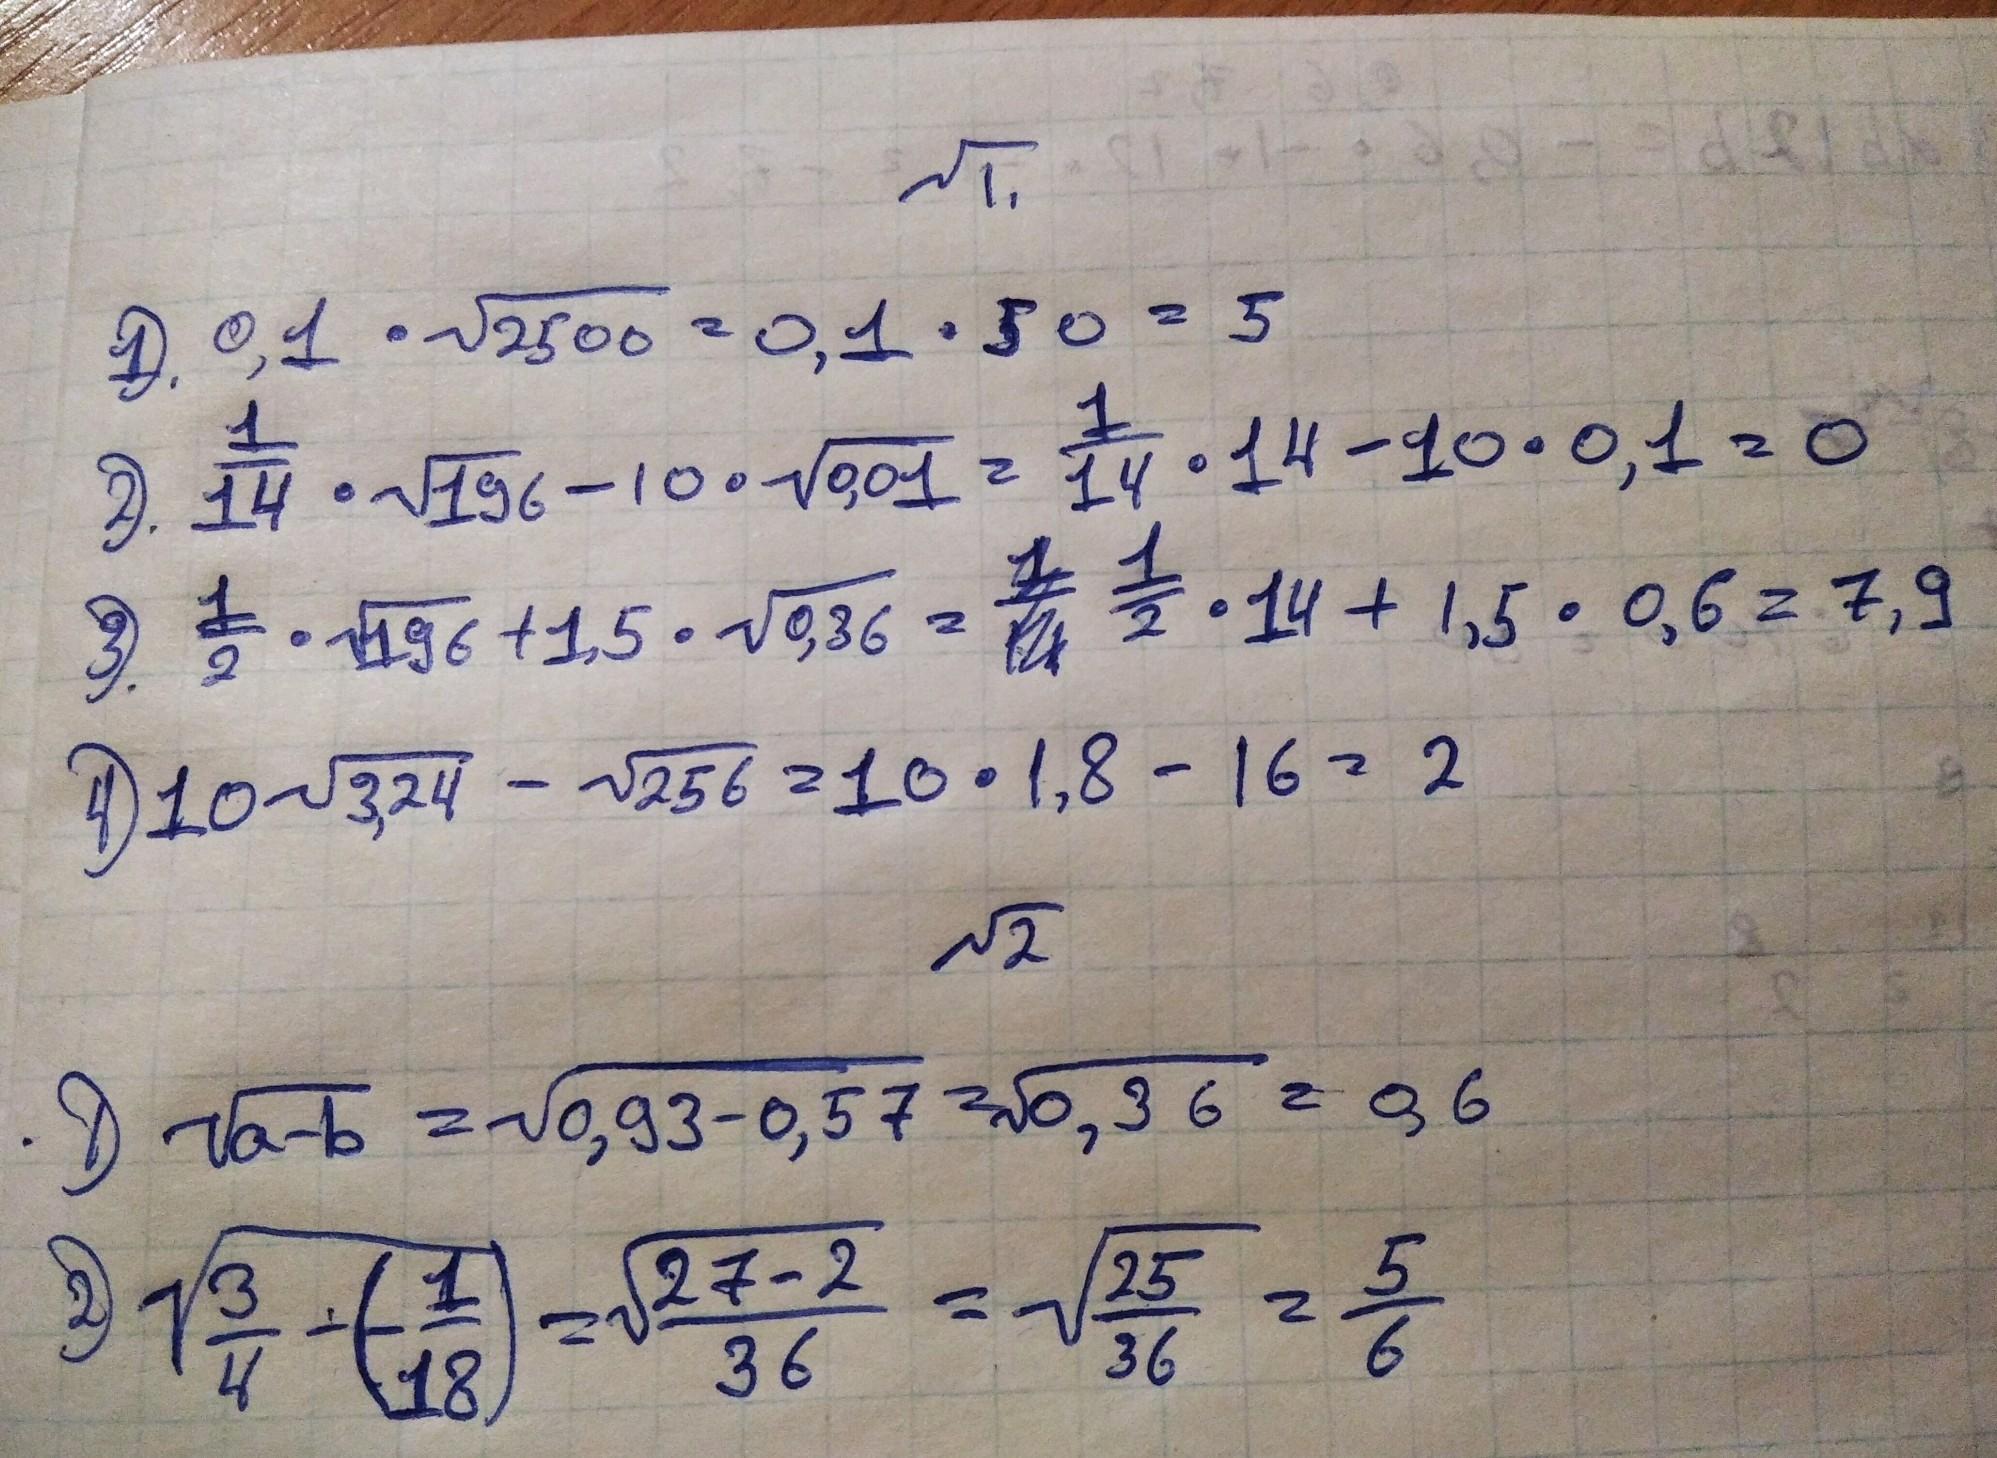 √1.
1). 0,1 · √2500 = 0,1 · 50 = 5
2). 1/14 · √196 - 10 · √0,01 = 1/14 · 14 - 10 · 0,1 = 0
3). 1/2 · √196 + 1,5 · √0,36 = 1/2 · 14 + 1,5 · 0,6 = 7,9
4) 10√3,24 - √256 = 10 · 1,8 - 16 = 2
√2
1) √a-b = √0,93-0,57 = √0,36 = 0,6
2) √3/4 + (-1/18) = √27-2/36 = √25/36 = 5/6